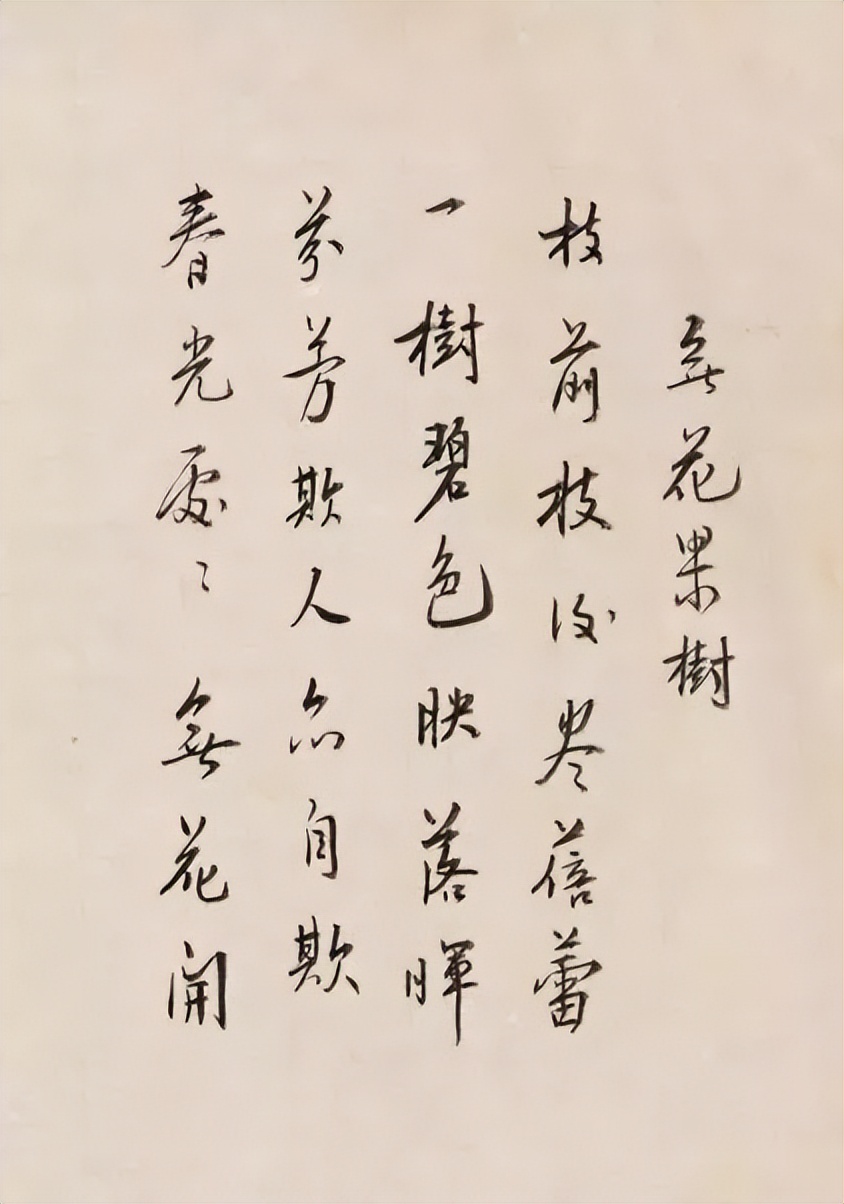 無花果樹
枝前枝後尽蓓蕾
一樹碧色映落暉
芬芳欺人亦自欺
春光處々無花開